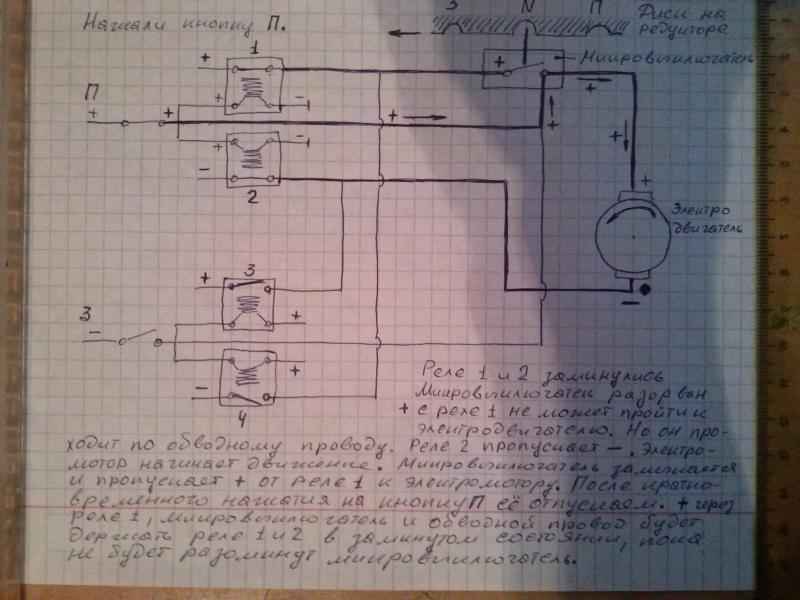 Нажали кнопку П.
З N П
Диск на
редукторе
Микровыключатель
1
+
+
П
+
+
+
-
+
+
+
+
-
-
2
+
Электро
двигатель
3
+
З
-
+
+
-
4
-
Реле 1 и 2 замкнулись
Микровыключатель разорван
+ с реле 1 не может пройти к
электродвигателю. Но он про-
ходит по обводному проводу. Реле 2 пропускает -. Электро-
мотор начинает движение. Микровыключатель замыкается
и пропускает + от реле 1 к электромотору. После кратко-
временного нажатия на кнопку П её отпускаем. + через
реле 1, микровыключатель и обводной провод будет
держать реле 1 и 2 в замкнутом состоянии, пока
не будет разомкнут микровыключатель.